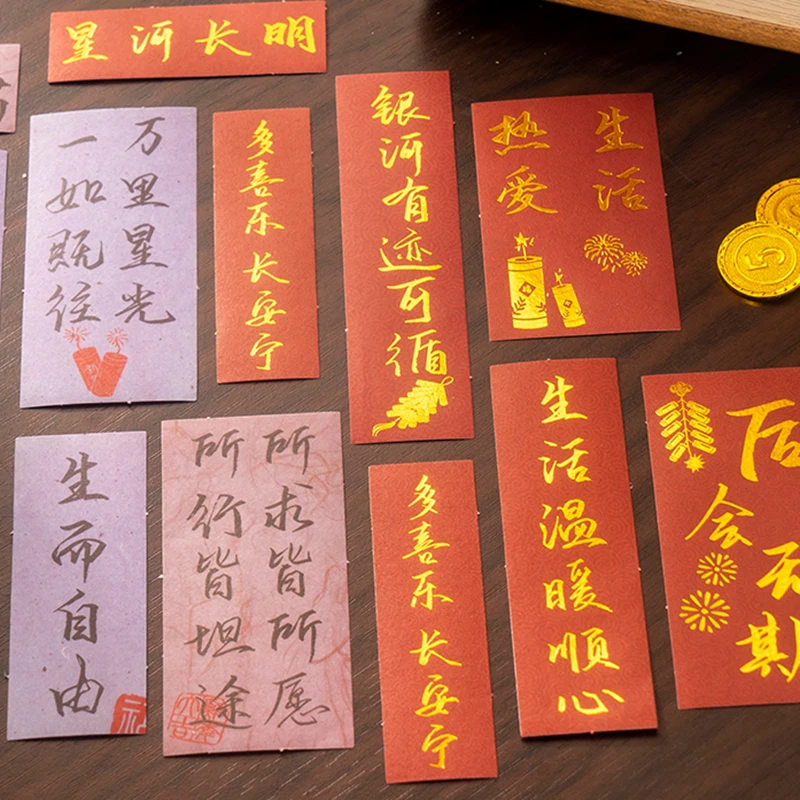 星河长明
万里星光
一如既往
多喜乐 长安宁
银河有迹可循
热爱
生活
生而自由
所求皆所愿
所行皆坦途
多喜乐 长安宁
生活温暖顺心
后会
期